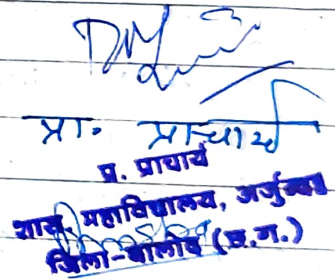 प्रा. प्राचार्य
प्र. प्राचार्य
शास. महाविद्यालय, अर्जुन्दा
जिला-बालोद (छ.ग.)